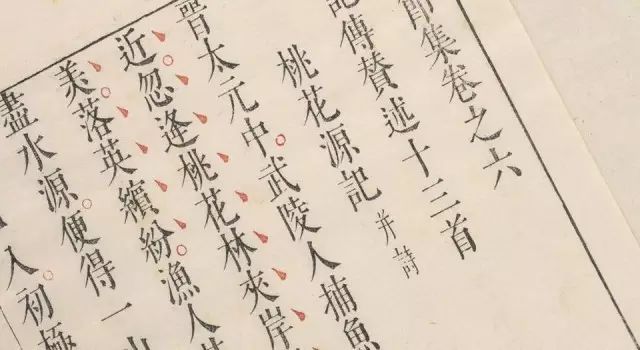 集卷之六
記傳贊述十三首
桃花源記 并詩
晉太元中武陵人捕魚
近忽逢桃花林夾岸
美落英繽紛漁人
盡水源便得一
入初極